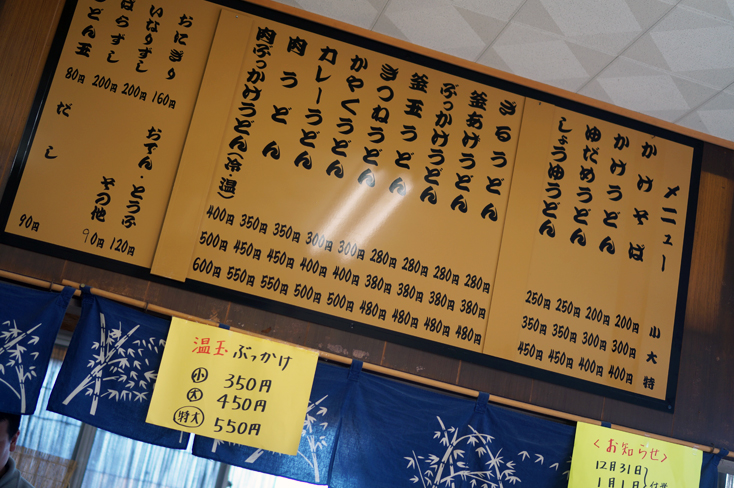 メニュー 小 大 特
かけそば 200円 300円 400円
かけうどん 200円 300円 400円
ゆだめうどん 250円 350円 450円
しょうゆうどん 250円 350円 450円
ざるうどん 280円 380円 480円
釜あげうどん 280円 380円 480円
ぶっかけうどん 280円 380円 480円
釜玉うどん 280円 380円 480円
きつねうどん 300円 400円 500円
かやくうどん 300円 400円 500円
カレーうどん 350円 450円 550円
肉うどん 350円 450円 550円
肉ぶっかけうどん(冷・温) 400円 500円 600円
おにぎり 160円
いなりずし 200円
ばらずし 200円
どん玉 80円
おでん・とうふ 120円
その他 90円
だし 90円
温玉 ぶっかけ
小 350円
大 450円
特大 550円
<お知らせ>
12月31日
1月1日